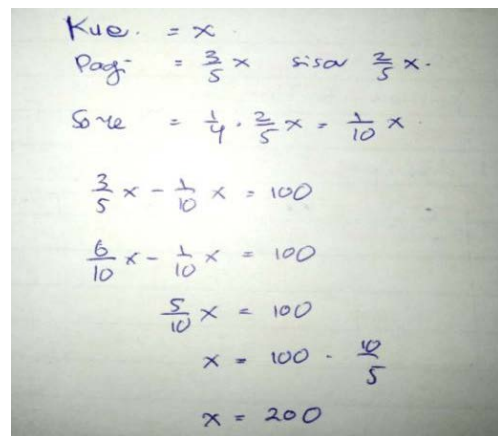 Kue. = x.
Pagi = 3/5 x sisa 2/5 x.
Sore = 1/4 . 2/5 x = 1/10 x.
3/5 x - 1/10 x = 100
6/10 x - 1/10 x = 100
5/10 x = 100
x = 100 . 10/5
x = 200